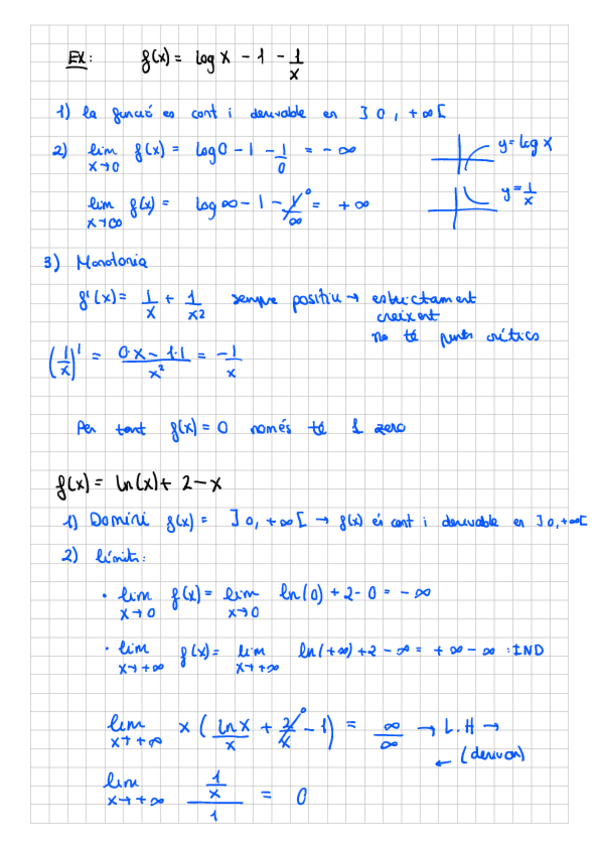 EX: f(x) = log x - 1 - 1/x
1) la funció es cont i derivable en ]0, +∞[
2) lim x→0 f(x) = log 0 - 1 - 1/0 = -∞
y = log x
lim x→∞ f(x) = log ∞ - 1 - 1/∞ 0 = +∞
y = 1/x
3) Monotonia
f'(x) = 1/x + 1/x2 sempre positiu → estrictament
creixent
no té punts crítics
(1/x)' = 0·x - 1·1/x² = -1/x
Per tant f(x) = 0 només té 1 zero
f(x) = ln(x) + 2 - x
1) Domini f(x) = ]0, +∞[ → f(x) és cont i derivable en ]0, +∞[
2) límits:
· lim x→0 f(x) = lim x→0 ln(0) + 2 - 0 = -∞
· lim x→+∞ f(x) = lim x→+∞ ln(+∞) + 2 - ∞ = +∞ - ∞ : IND
lim x→+∞ x (ln x/x + 2/x 0 - 1) = ∞/∞ → L.H →
← (derivar)
lim x→+∞ 1/x/1 = 0